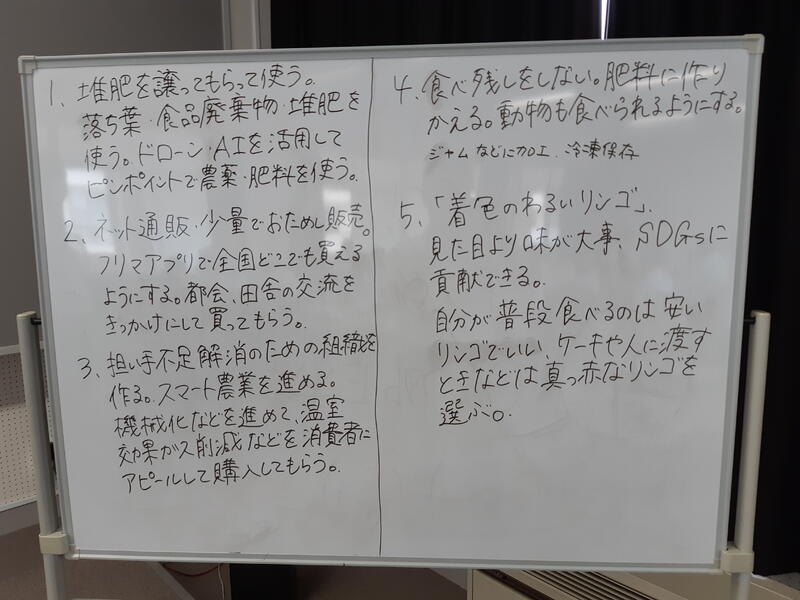 1、堆肥を譲ってもらって使う。
落ち葉・食品廃棄物・堆肥を
使う。ドローン・AIを活用して
ピンポイントで農薬・肥料を使う。
2、ネット通販・少量でおためし販売。
フリマアプリで全国どこでも買える
ようにする。都会、田舎の交流を
きっかけにして買ってもらう。
3、担い手不足解消のための組織を
作る。スマート農業を進める。
機械化などを進めて、温室
効果ガス削減などを消費者に
アピールして購入してもらう。
4、食べ残しをしない。肥料に作り
かえる。動物も食べられるようにする。
ジャムなどに加工、冷凍保存
5、「着色のわるいリンゴ」、
見た目より味が大事、SDGsに
貢献できる。
自分が普段食べるのは安い
リンゴでいい、ケーキや人に渡す
ときなどは真っ赤なリンゴを
選ぶ。